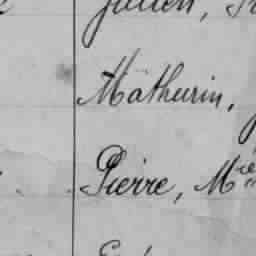 Julien,
Mathurin,
Pierre, Mie